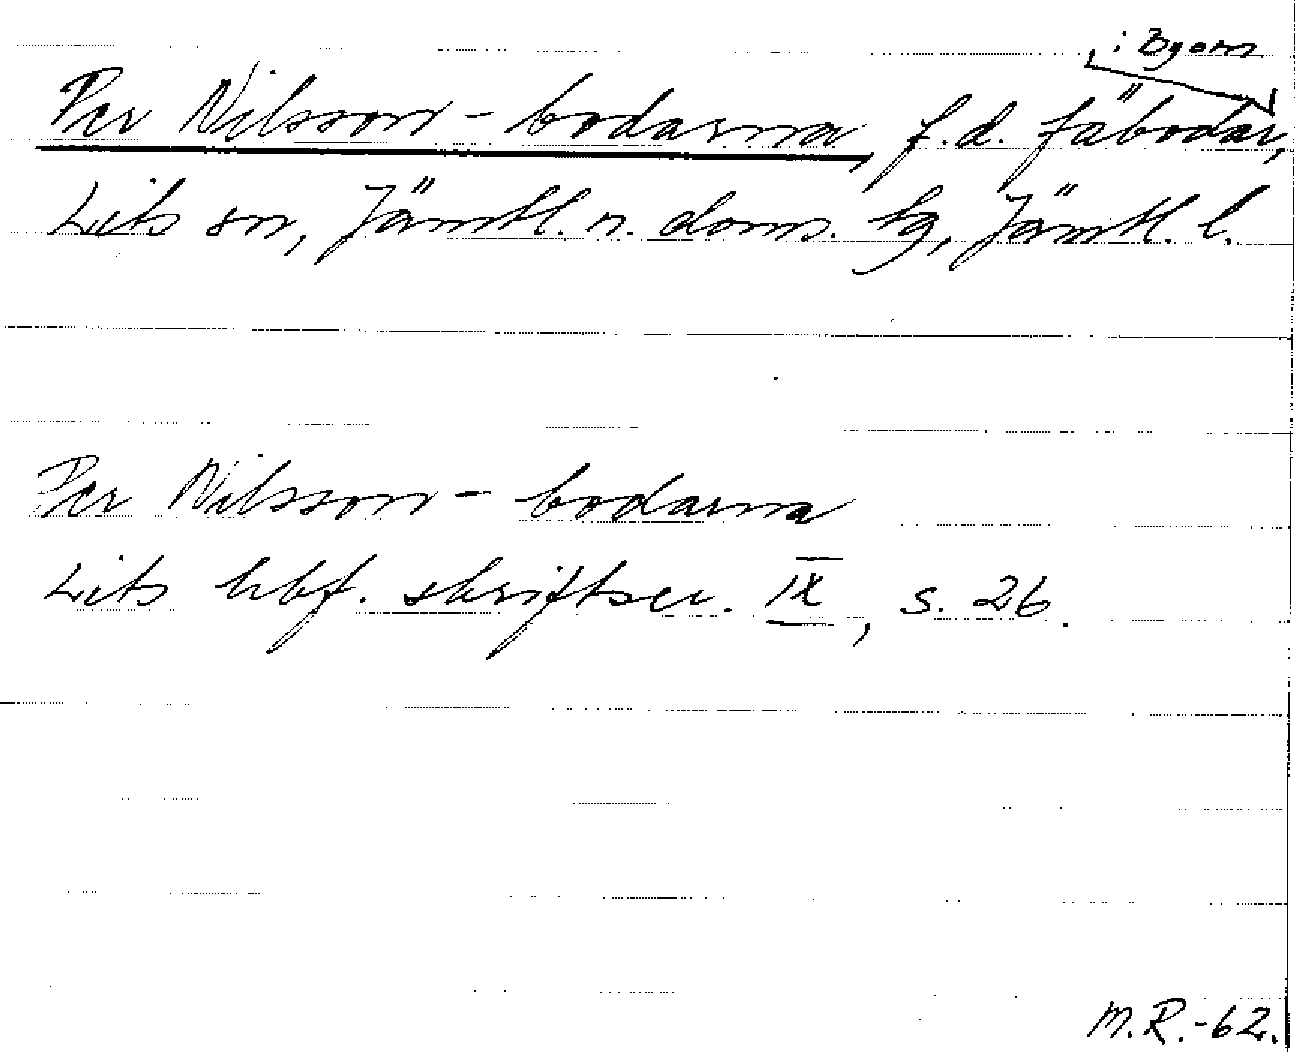 i Byom
Per Nilsson-bodarna, f.d. fäbodar,
Lits sn, Jämtl. n. doms. tg, Jämtl. l.
Per Nilsson-bodarna
Lits hbf. skriftser. IX, s. 26.
M.R.-62.